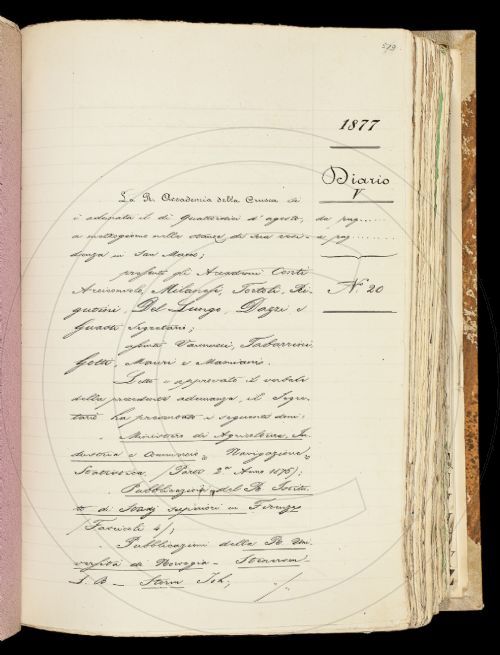 579
1877
Diario
V
La R. Accademia della Crusca si
è adunata il dì Quattordici d'agosto, da pag......
a mezzogiorno nelle stanze di sua resi- a pag.......
denza in San Marco;
presenti gli Accademici Conti
Arciconsolo, Milanesi, Tortoli, Ri- N.º 20
gutini, Del Lungo, Dazzi e
Guasti Segretario;
assenti Vannucci, Tabarrini
Gotti, Mauri e Mamiani.
Letto e approvato il verbale
della precedente adunanza, il Segre-
tario ha presentato i seguenti doni:
Ministero di Agricoltura, In-
dustria e Commercio, Navigazione,
Statistica, (Parte 2ª Anno 1876);
Pubblicazioni del R. Istitu-
to di Studj superiori in Firenze
(Fascicoli 4);
Pubblicazioni della R. Uni-
versità di Norvegia -
J. B. - Storm Joh; ./.